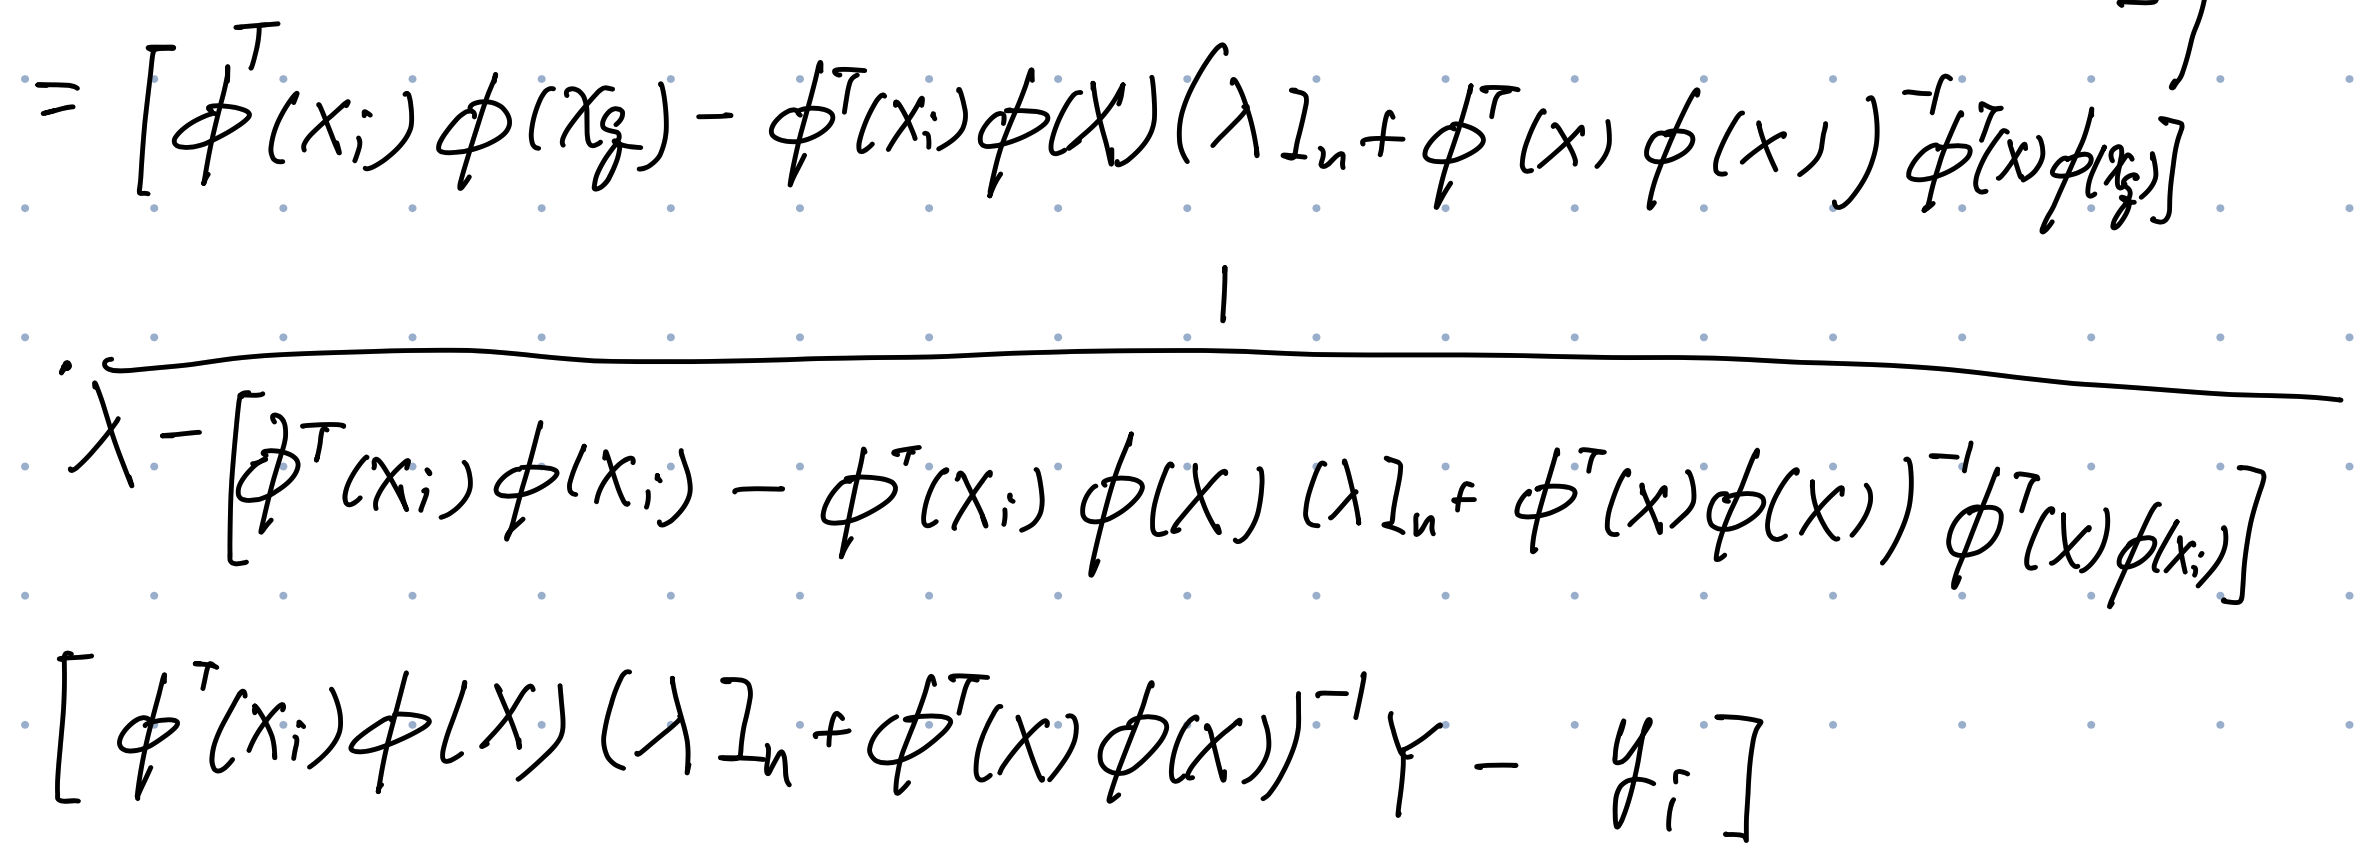 = [ϕᵀ(xᵢ) ϕ(x_g) − ϕᵀ(xᵢ) ϕ(X) (λIₙ + ϕᵀ(X) ϕ(X))⁻¹ ϕᵀ(X) ϕ(x_g)]
· 1 / (λ − [ϕᵀ(xᵢ) ϕ(xᵢ) − ϕᵀ(xᵢ) ϕ(X) (λIₙ + ϕᵀ(X) ϕ(X))⁻¹ ϕᵀ(X) ϕ(xᵢ)])
[ϕᵀ(xᵢ) ϕ(X) (λIₙ + ϕᵀ(X) ϕ(X))⁻¹ Y − yᵢ]